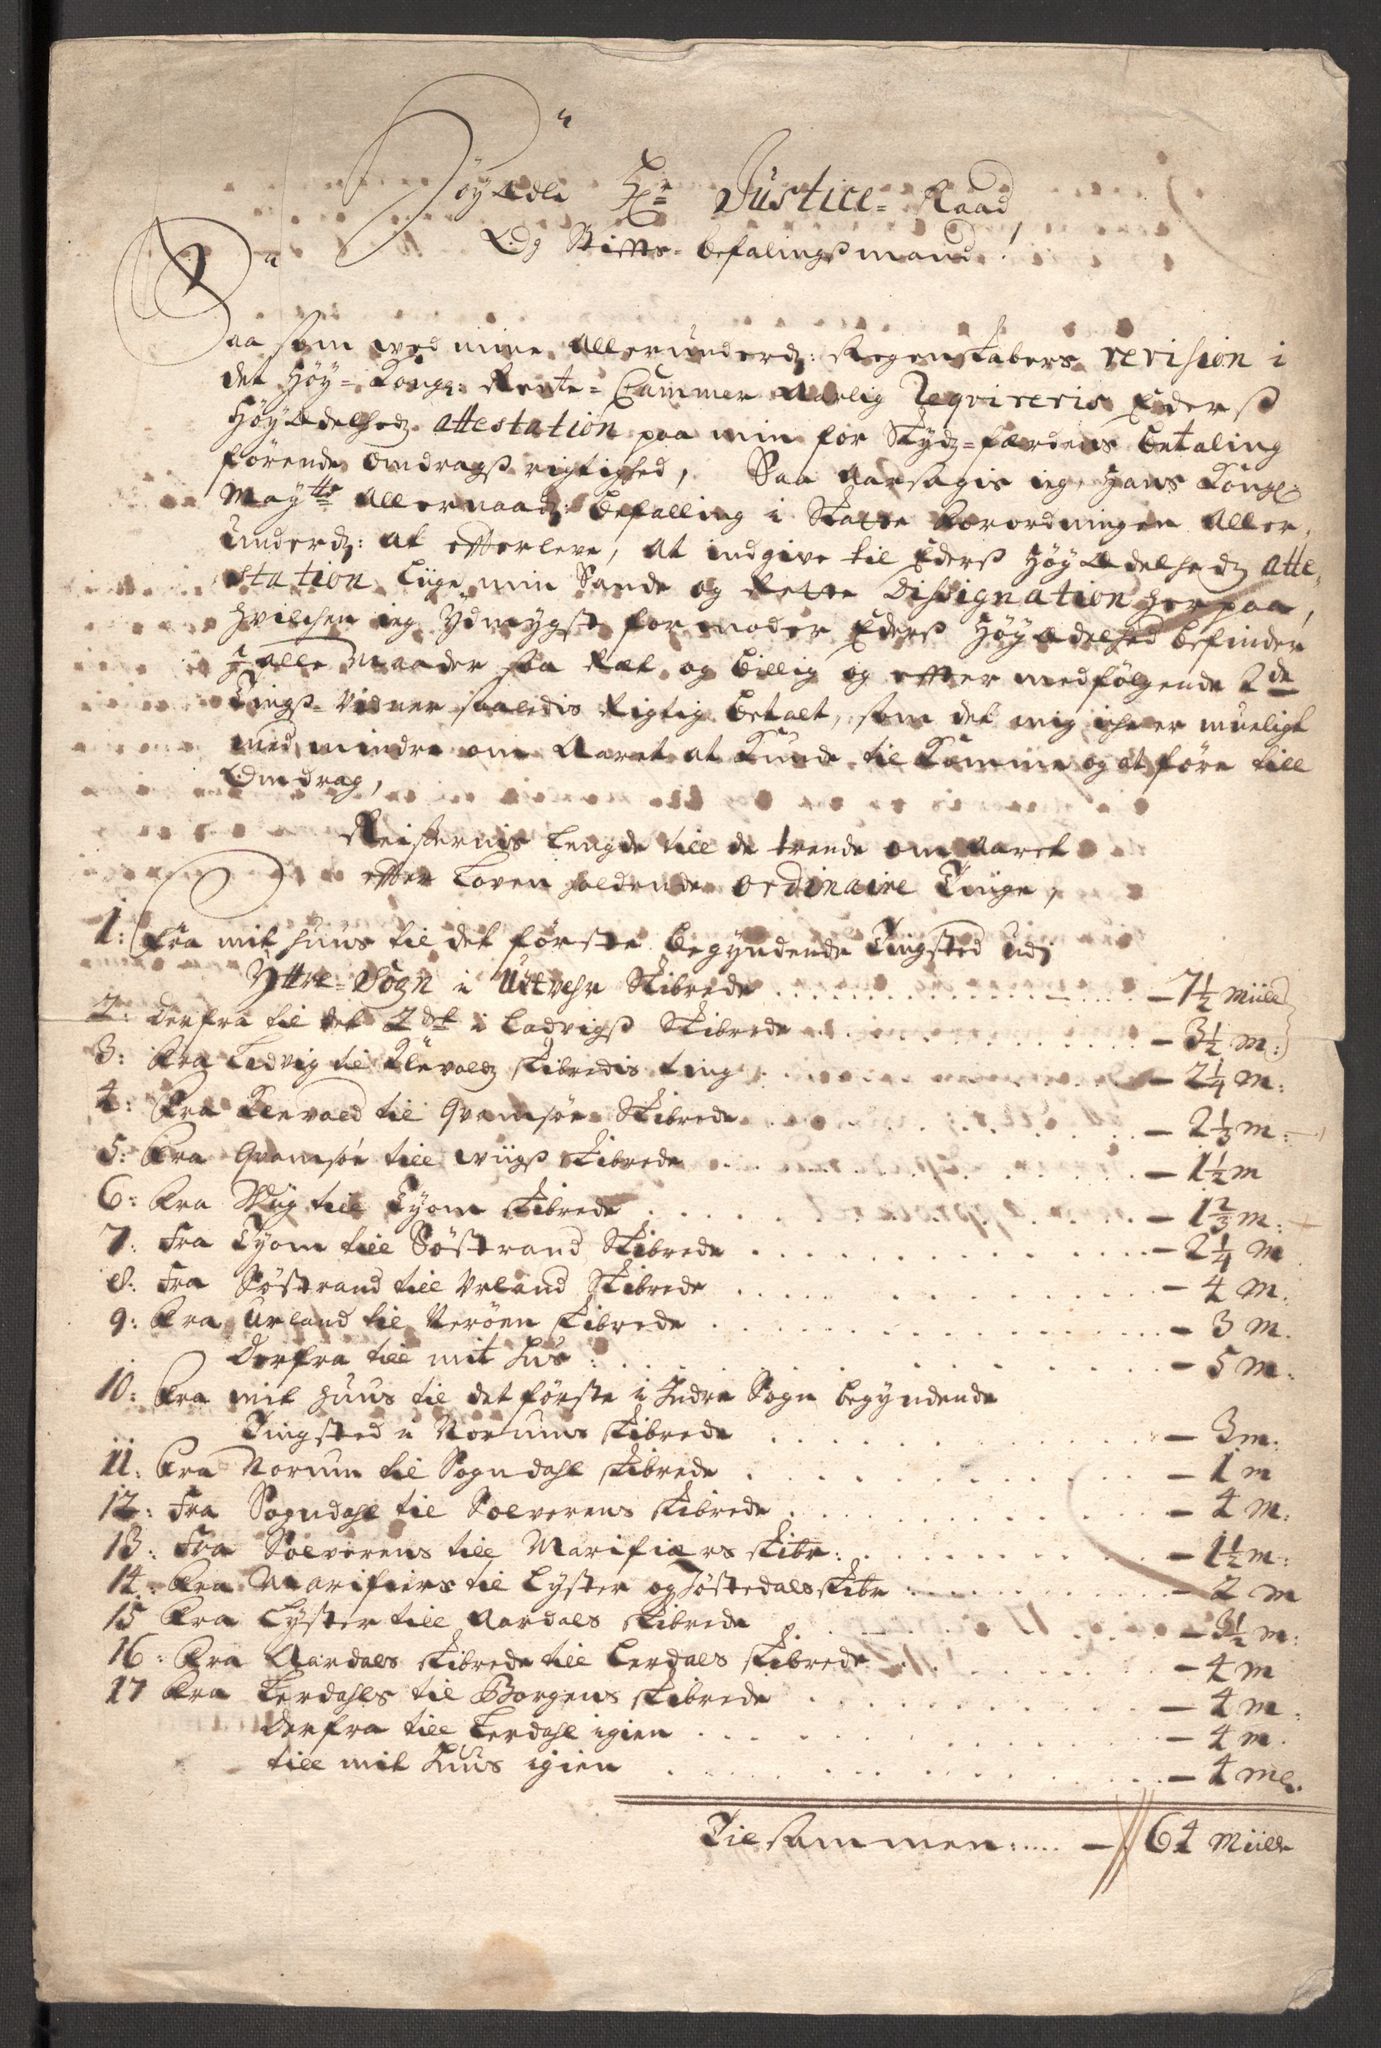 Høy Ædle Hr Justice-Raad
Og Stiffts-befalingsmand!
Saa som ved mine allerunderd: Regenskabers revision i
det Høy-Kongl: Rente-Cammer Aarlig Reqvireris Eders
HøyÆdelhedz attestation paa min for Skydz-færdens betaling
førende Omdrags rigtighed, Saa Aarsagis ieg, Hans Kongl:
Maytts allernaad: befalling i Skatte forordningen aller-
underd: at efterleve, at indgive til Eders HøyÆdelhedz atte-
station liige min Sande og Rette Dissignation her paa,
hvilchen ieg ydmygst formoder Eders HøyÆdelhed befinder
I alle maader saa Ræt og billig og efter medfølgende 2de
Tings-vidner saaledis Rigtig betalt, som det mig iche er mueligt
med mindre om Aaret at kunde til komme og at føre till
Omdrag,
Reisernis lengde till de trende om Aaret
efter loven holdende ordinaire Tinge,
1: Fra mit huus til det første begyndende Tingsted udj
Yttre-Sogn i Uttvehr Skibrede - 7½ miile
2: Derfra til det 2det i Ladvigs Skibrede - 3½ m:
3: Fra Ladvig til Klevoldz skibredis ting - 2¼ m:
4: Fra Klevold til Qvamsøe Skibrede - 2⅓ m:
5: Fra Qvamsøe till wiigs skibrede - 1½ m
6: Fra Wiig till Tyom skibrede - 1⅔ m:
7: Fra Tyom till Søstrand Skibrede - 2¼ m
8: Fra Søstrand till Urland Skibrede - 4 m.
9: Fra Urland til Verøen skibrede - 3 m.
Derfra till mit Huus - 5 m:
10: Fra mit huus til det første i Indre Sogn begyndende
Tingsted i Norums skibrede - 3 m:
11: Fra Norum til Sogndahl skibrede - 1 m
12: Fra Sogndahl til Solverens skibrede - 4 m:
13: Fra Solverens till Marifiærs skibr: - 1½ m:
14: Fra Marifiers til Lyster og Jostedals skibr - 2 m
15 Fra Lyster till Aardals skibrede - 3½ m:
16: Fra Aardals skibrede till Lerdals skibrede - 4 m
17 Fra Lerdahls til Borgens skibrede - 4 m:
Derfra till Lerdahl igien - 4 m.
till mit Huus igien - 4 ml.
Tilsammen: - 64 Miile